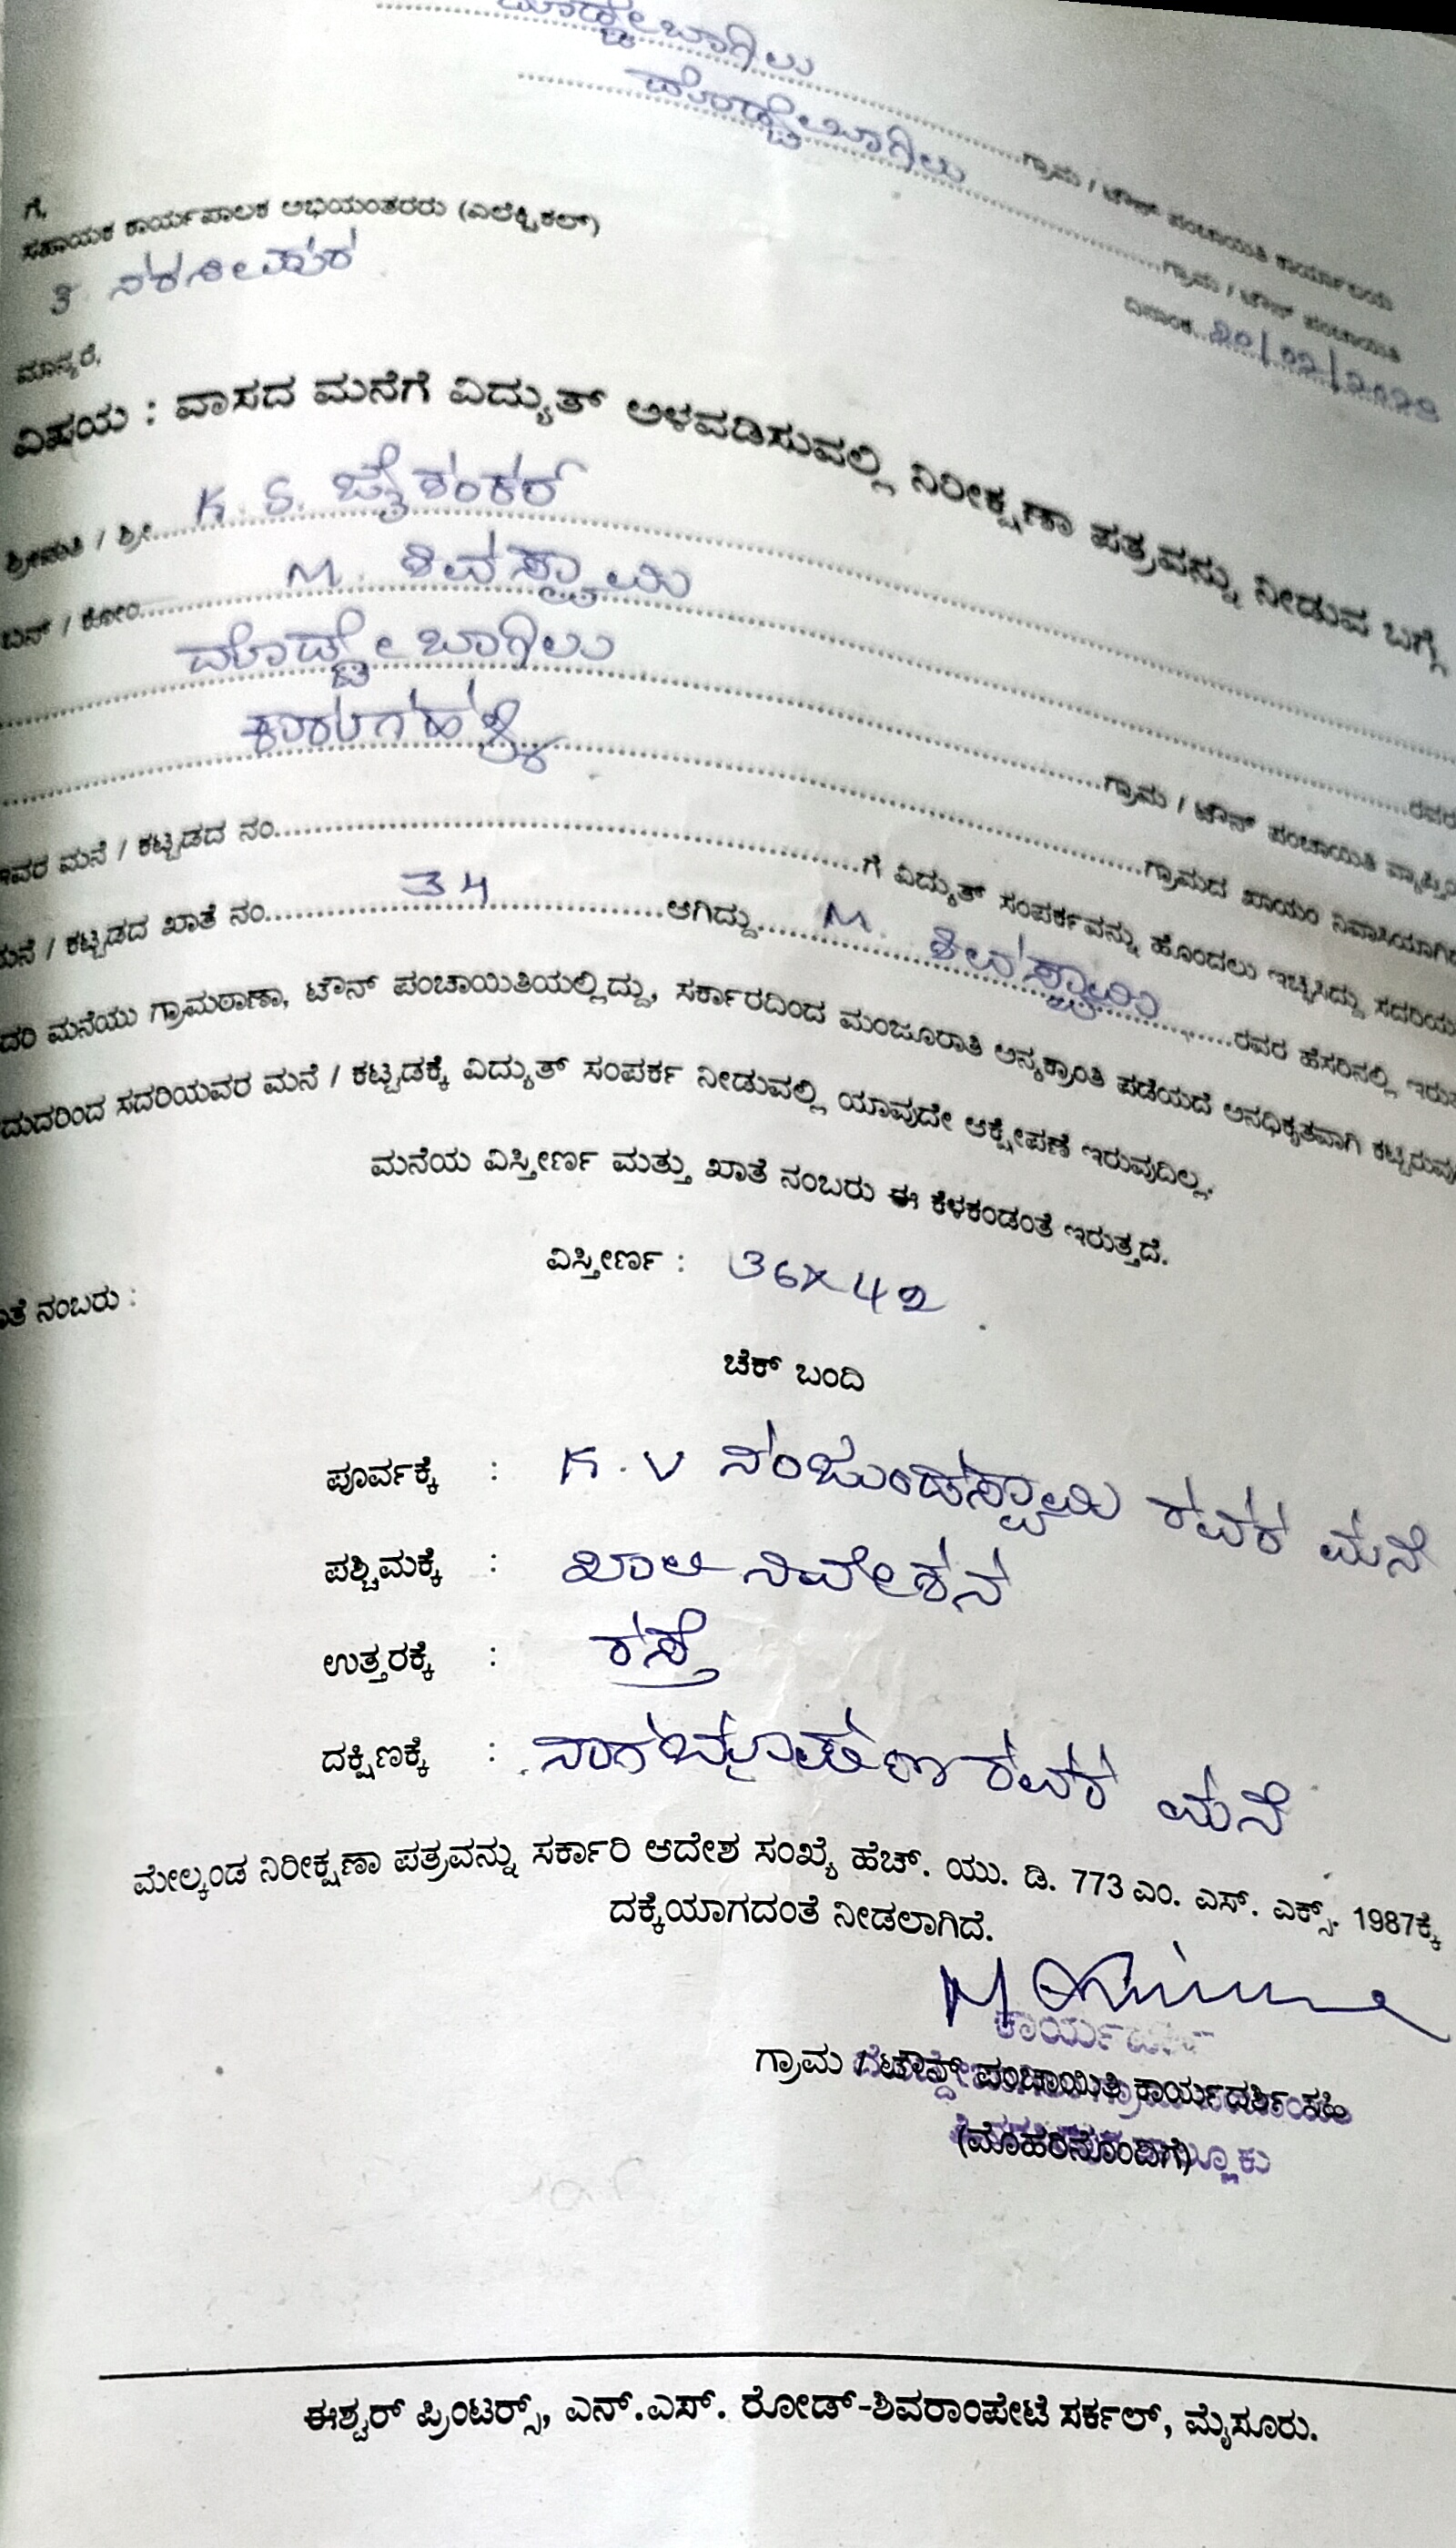 ದೊಡ್ಡೇಬಾಗಿಲು ಗ್ರಾಮ / ಟೌನ್ ಪಂಚಾಯಿತಿ ಕಾರ್ಯಾಲಯ
ದೊಡ್ಡೇಬಾಗಿಲು ಗ್ರಾಮ / ಟೌನ್ ಪಂಚಾಯಿತಿ
ದಿನಾಂಕ
ಗೆ,
ಸಹಾಯಕ ಕಾರ್ಯಪಾಲಕ ಅಭಿಯಂತರರು (ಎಲೆಕ್ಟ್ರಿಕಲ್)
ತಿ ನರಸೀಪುರ
ಮಾನ್ಯರೆ,
ವಿಷಯ : ವಾಸದ ಮನೆಗೆ ವಿದ್ಯುತ್ ಅಳವಡಿಸುವಲ್ಲಿ ನಿರೀಕ್ಷಣಾ ಪತ್ರವನ್ನು ನೀಡುವ ಬಗ್ಗೆ
ಶ್ರೀಮತಿ / ಶ್ರೀ K. S. ಜೈಶಂಕರ್
ಬಿನ್ / ಕೋಂ M. ಶಿವಸ್ವಾಮಿ ರವರ
ದೊಡ್ಡೇಬಾಗಿಲು ಗ್ರಾಮ / ಟೌನ್ ಪಂಚಾಯಿತಿ ವ್ಯಾಪ್ತಿ
ಗ್ರಾಮದ ಖಾಯಂ ನಿವಾಸಿಯಾಗಿದ
ಇವರ ಮನೆ / ಕಟ್ಟಡದ ನಂ ಗೆ ವಿದ್ಯುತ್ ಸಂಪರ್ಕವನ್ನು ಹೊಂದಲು ಇಚ್ಛಿಸಿದ್ದು ಸದರಿಯ
ಮನೆ / ಕಟ್ಟಡದ ಖಾತೆ ನಂ 34 ಆಗಿದ್ದು M. ಶಿವಸ್ವಾಮಿ ರವರ ಹೆಸರಿನಲ್ಲಿ ಇರು
ದರಿ ಮನೆಯು ಗ್ರಾಮಠಾಣಾ, ಟೌನ್ ಪಂಚಾಯಿತಿಯಲ್ಲಿದ್ದು, ಸರ್ಕಾರದಿಂದ ಮಂಜೂರಾತಿ ಅನ್ಯಕ್ರಾಂತಿ ಪಡೆಯದೆ ಅನಧಿಕೃತವಾಗಿ ಕಟ್ಟಿರುವು
ದುದರಿಂದ ಸದರಿಯವರ ಮನೆ / ಕಟ್ಟಡಕ್ಕೆ ವಿದ್ಯುತ್ ಸಂಪರ್ಕ ನೀಡುವಲ್ಲಿ ಯಾವುದೇ ಆಕ್ಷೇಪಣೆ ಇರುವುದಿಲ್ಲ.
ಮನೆಯ ವಿಸ್ತೀರ್ಣ ಮತ್ತು ಖಾತೆ ನಂಬರು ಈ ಕೆಳಕಂಡಂತೆ ಇರುತ್ತದೆ.
ತೆ ನಂಬರು : ವಿಸ್ತೀರ್ಣ : 36x42
ಚೆಕ್ ಬಂದಿ
ಪೂರ್ವಕ್ಕೆ : K. V ನಂಜುಂಡಸ್ವಾಮಿ ರವರ ಮನೆ
ಪಶ್ಚಿಮಕ್ಕೆ : ಖಾಲಿ ನಿವೇಶನ
ಉತ್ತರಕ್ಕೆ : ರಸ್ತೆ
ದಕ್ಷಿಣಕ್ಕೆ : ನಾಗಭೂಷಣರವರ ಮನೆ
ಮೇಲ್ಕಂಡ ನಿರೀಕ್ಷಣಾ ಪತ್ರವನ್ನು ಸರ್ಕಾರಿ ಆದೇಶ ಸಂಖ್ಯೆ ಹೆಚ್. ಯು. ಡಿ. 773 ಎಂ. ಎಸ್. ಎಕ್ಸ್. 1987ಕ್ಕೆ
ದಕ್ಕೆಯಾಗದಂತೆ ನೀಡಲಾಗಿದೆ.
ಗ್ರಾಮ / ಟೌನ್ ಪಂಚಾಯಿತಿ ಕಾರ್ಯದರ್ಶಿ ಸಹಿ
(ಮೊಹರಿನೊಂದಿಗೆ)
ಈಶ್ವರ್ ಪ್ರಿಂಟರ್ಸ್, ಎನ್.ಎಸ್. ರೋಡ್-ಶಿವರಾಂಪೇಟೆ ಸರ್ಕಲ್, ಮೈಸೂರು.